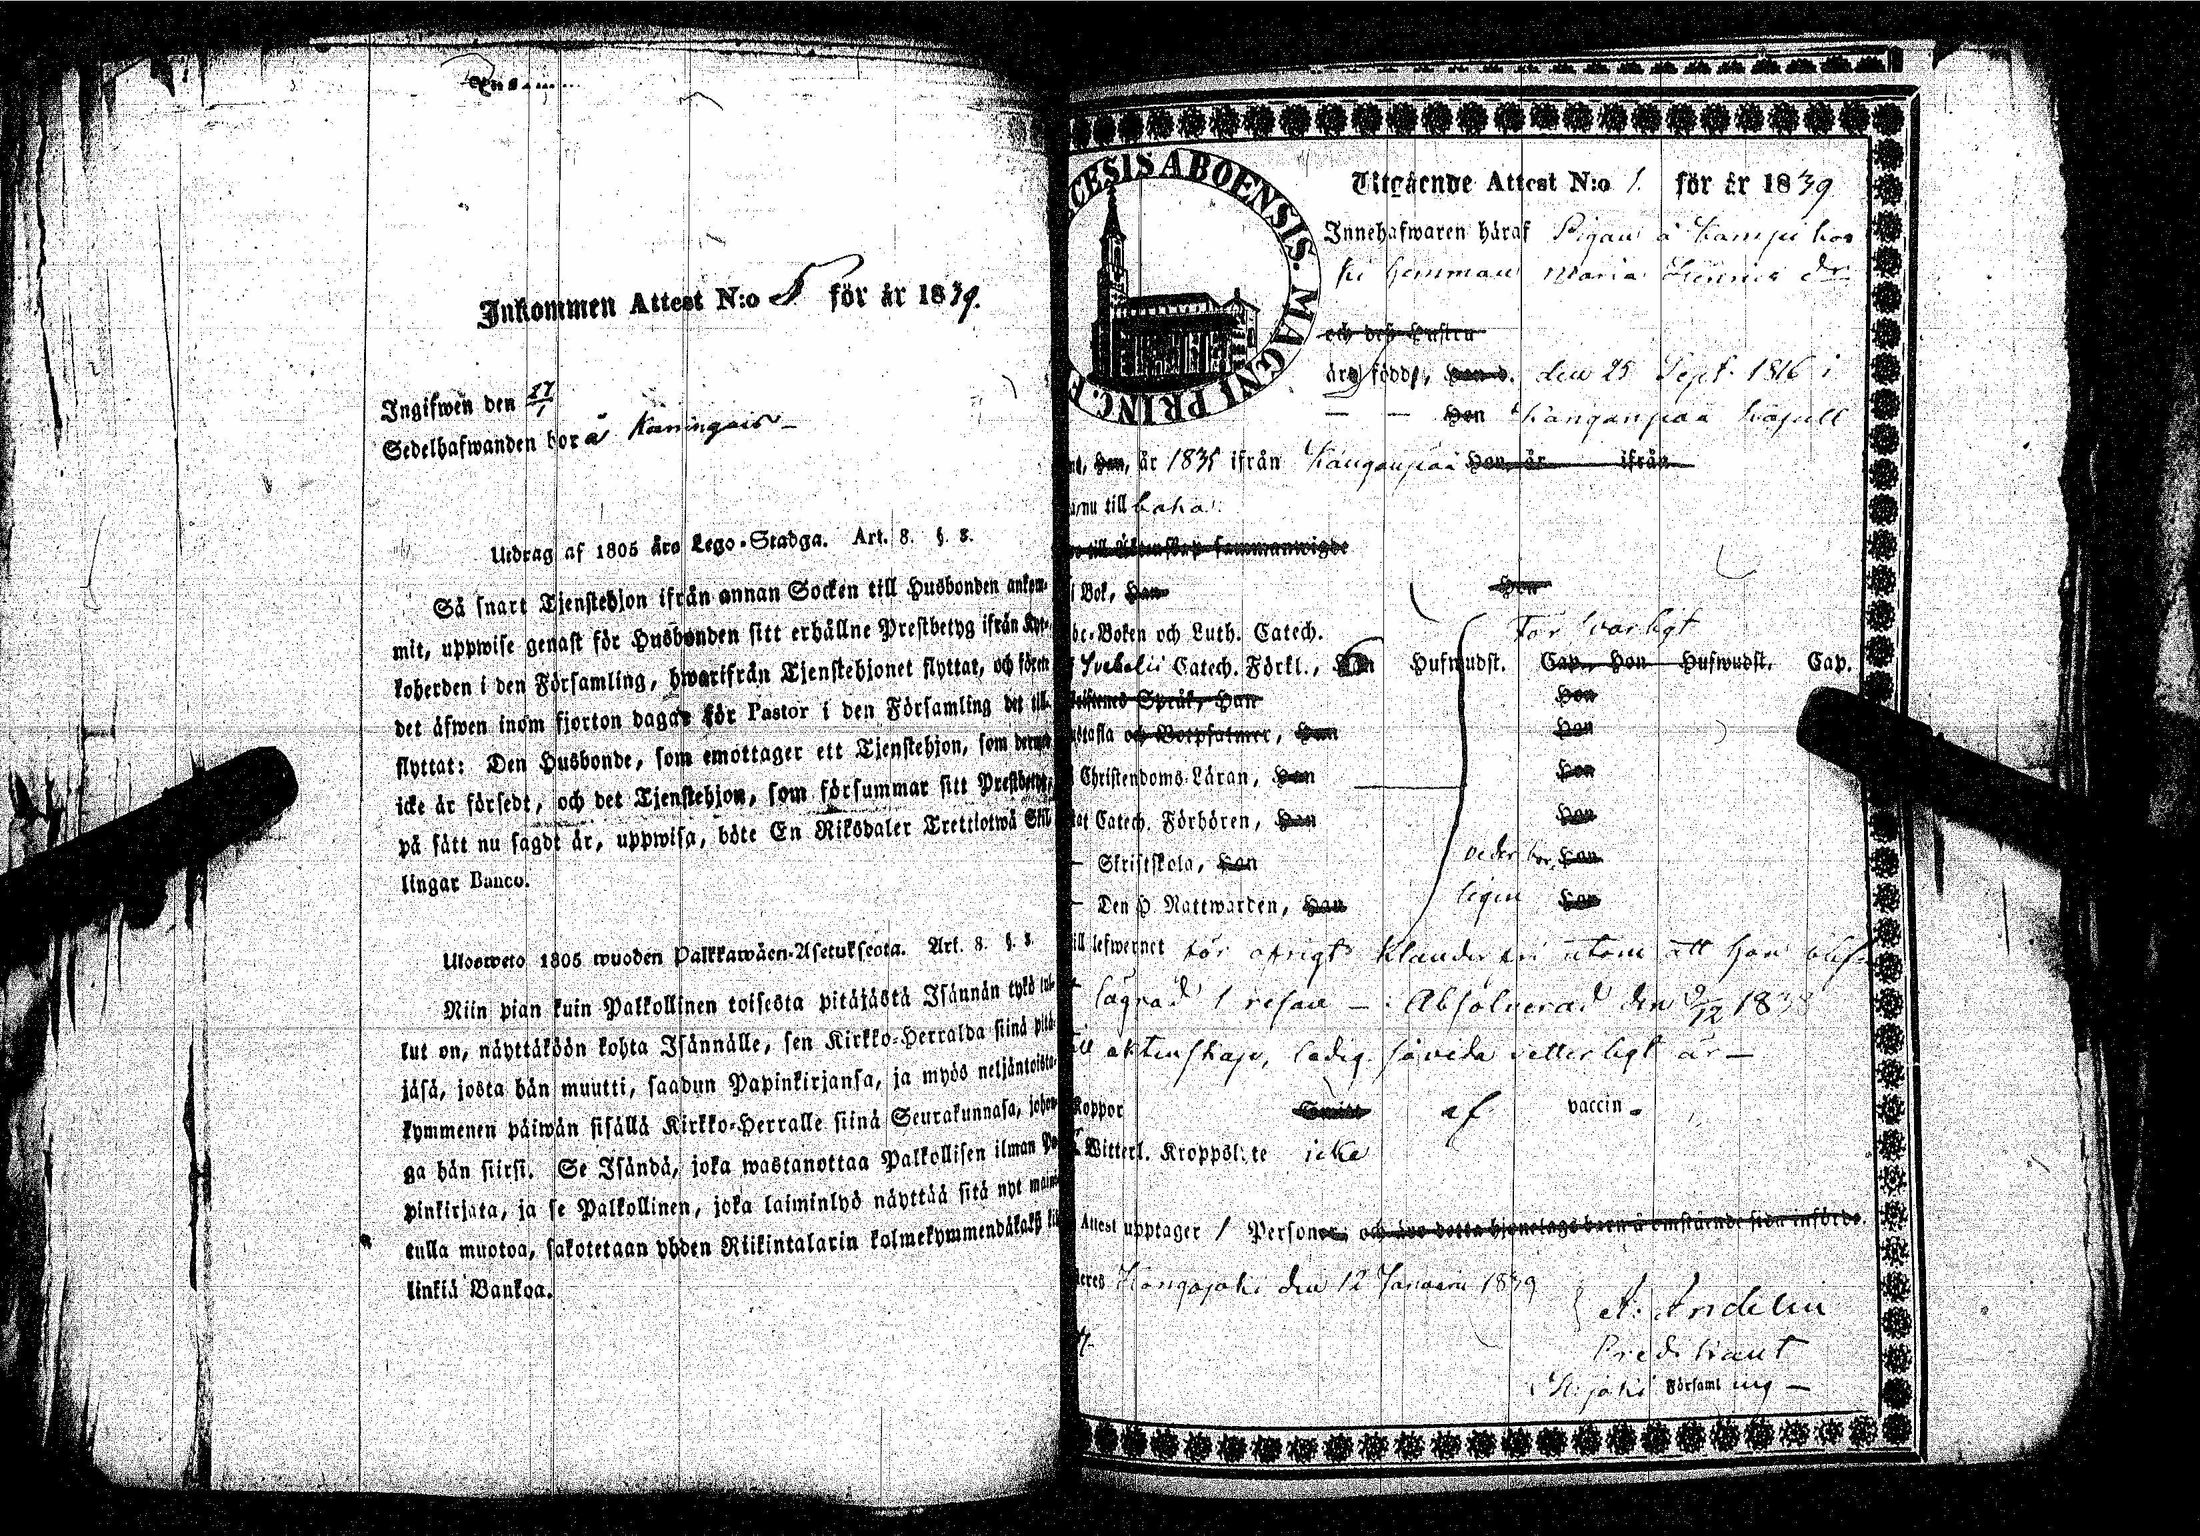 Inkommen Attest N:o 5 för år 1839.
Ingifwen den 27/1
Sedelhafwanden bor å
Utdrag af 1805 års Lego-Stadga. Art. 8. §. 8.
Så snart Tjenstehjon ifrån annan Socken till Husbonden ankom-
mit, uppwise genast för Husbonden sitt erhållne Prestbetyg ifrån Kyr-
koherden i den Församling, hwarifrån Tjenstehjonet flyttat, och förete
det äfwen inom fjorton dagar för Pastor i den Församling det till-
flyttat: Den Husbonde, som emottager ett Tjenstehjon, som dermed
icke är försedt, och det Tjenstehjon, som försummar sitt Prestbetyg,
på sätt nu sagdt är, uppwisa, böte En Riksdaler Trettiotwå Skil-
lingar Banco.
Ulosweto 1805 wuoden Palkkawäen-Asetuksesta. Art. 8. §. 8.
Niin pian kuin Palkollinen toisesta pitäjästä Isännän tykö tul-
lut on, näyttäköön kohta Isännälle, sen Kirkko-Herralda siinä pitä-
jäsä, josta hän muutti, saadun Papinkirjansa, ja myös neljäntoista-
kymmenen päiwän sisällä Kirkko-Herralle siinä Seurakunnasa, johon-
ga hän siirsi. Se Isändä, joka wastanottaa Palkollisen ilman Pa-
pinkirjata, ja se Palkollinen, joka laiminlyö näyttää sitä nyt main-
tulla muotoa, sakotetaan yhden Riikintalarin kolmekymmendäkaksi kil-
linkiä Bankoa.
CESIS ABOENSIS. MAGNI PRINC. F
Utgående Attest N:o 1. för år 1839
Innehafwaren häraf Pigan å Kampi kos
ki hemman Maria dr
och deß Hustru
äro född, han d. den 25 Sept. 1816 i
Hon Kangunpää Kapell
han, år 1835 ifrån Kangunpää Hon, år ifrån
nu till baka
till Äktenskap sammanwigde
i Bok, Han Hon
Boken och Luth. Catech. Försvarligt
Svebelii Catech. Förkl., Han Hufwudst. Cap. Hon Hufwudst. Cap.
Språk, Han Hon
och Botpsalmer, Han Hon
Christendoms-Läran, Han Hon
Catech. Förhören, Han Hon
Skriftskola, Han vederbör Hon
Den H. Nattwarden, Han ligen Hon
till lefwernet för öfrigt klander fri utom att hon blif
lägrad 1 resan — : Absolverad den 9/12 1838
till äktenskap, ledig såvida vetterligt är —
Koppor af vaccin.
Witterl. Kroppslyte icke
Attest upptager 1 Personer; och äro detta hjonelags barn å omstående sida införde.
Hongojoki den 12 Januari 1839
A: Andelin
Predikant
H:joki Församling —